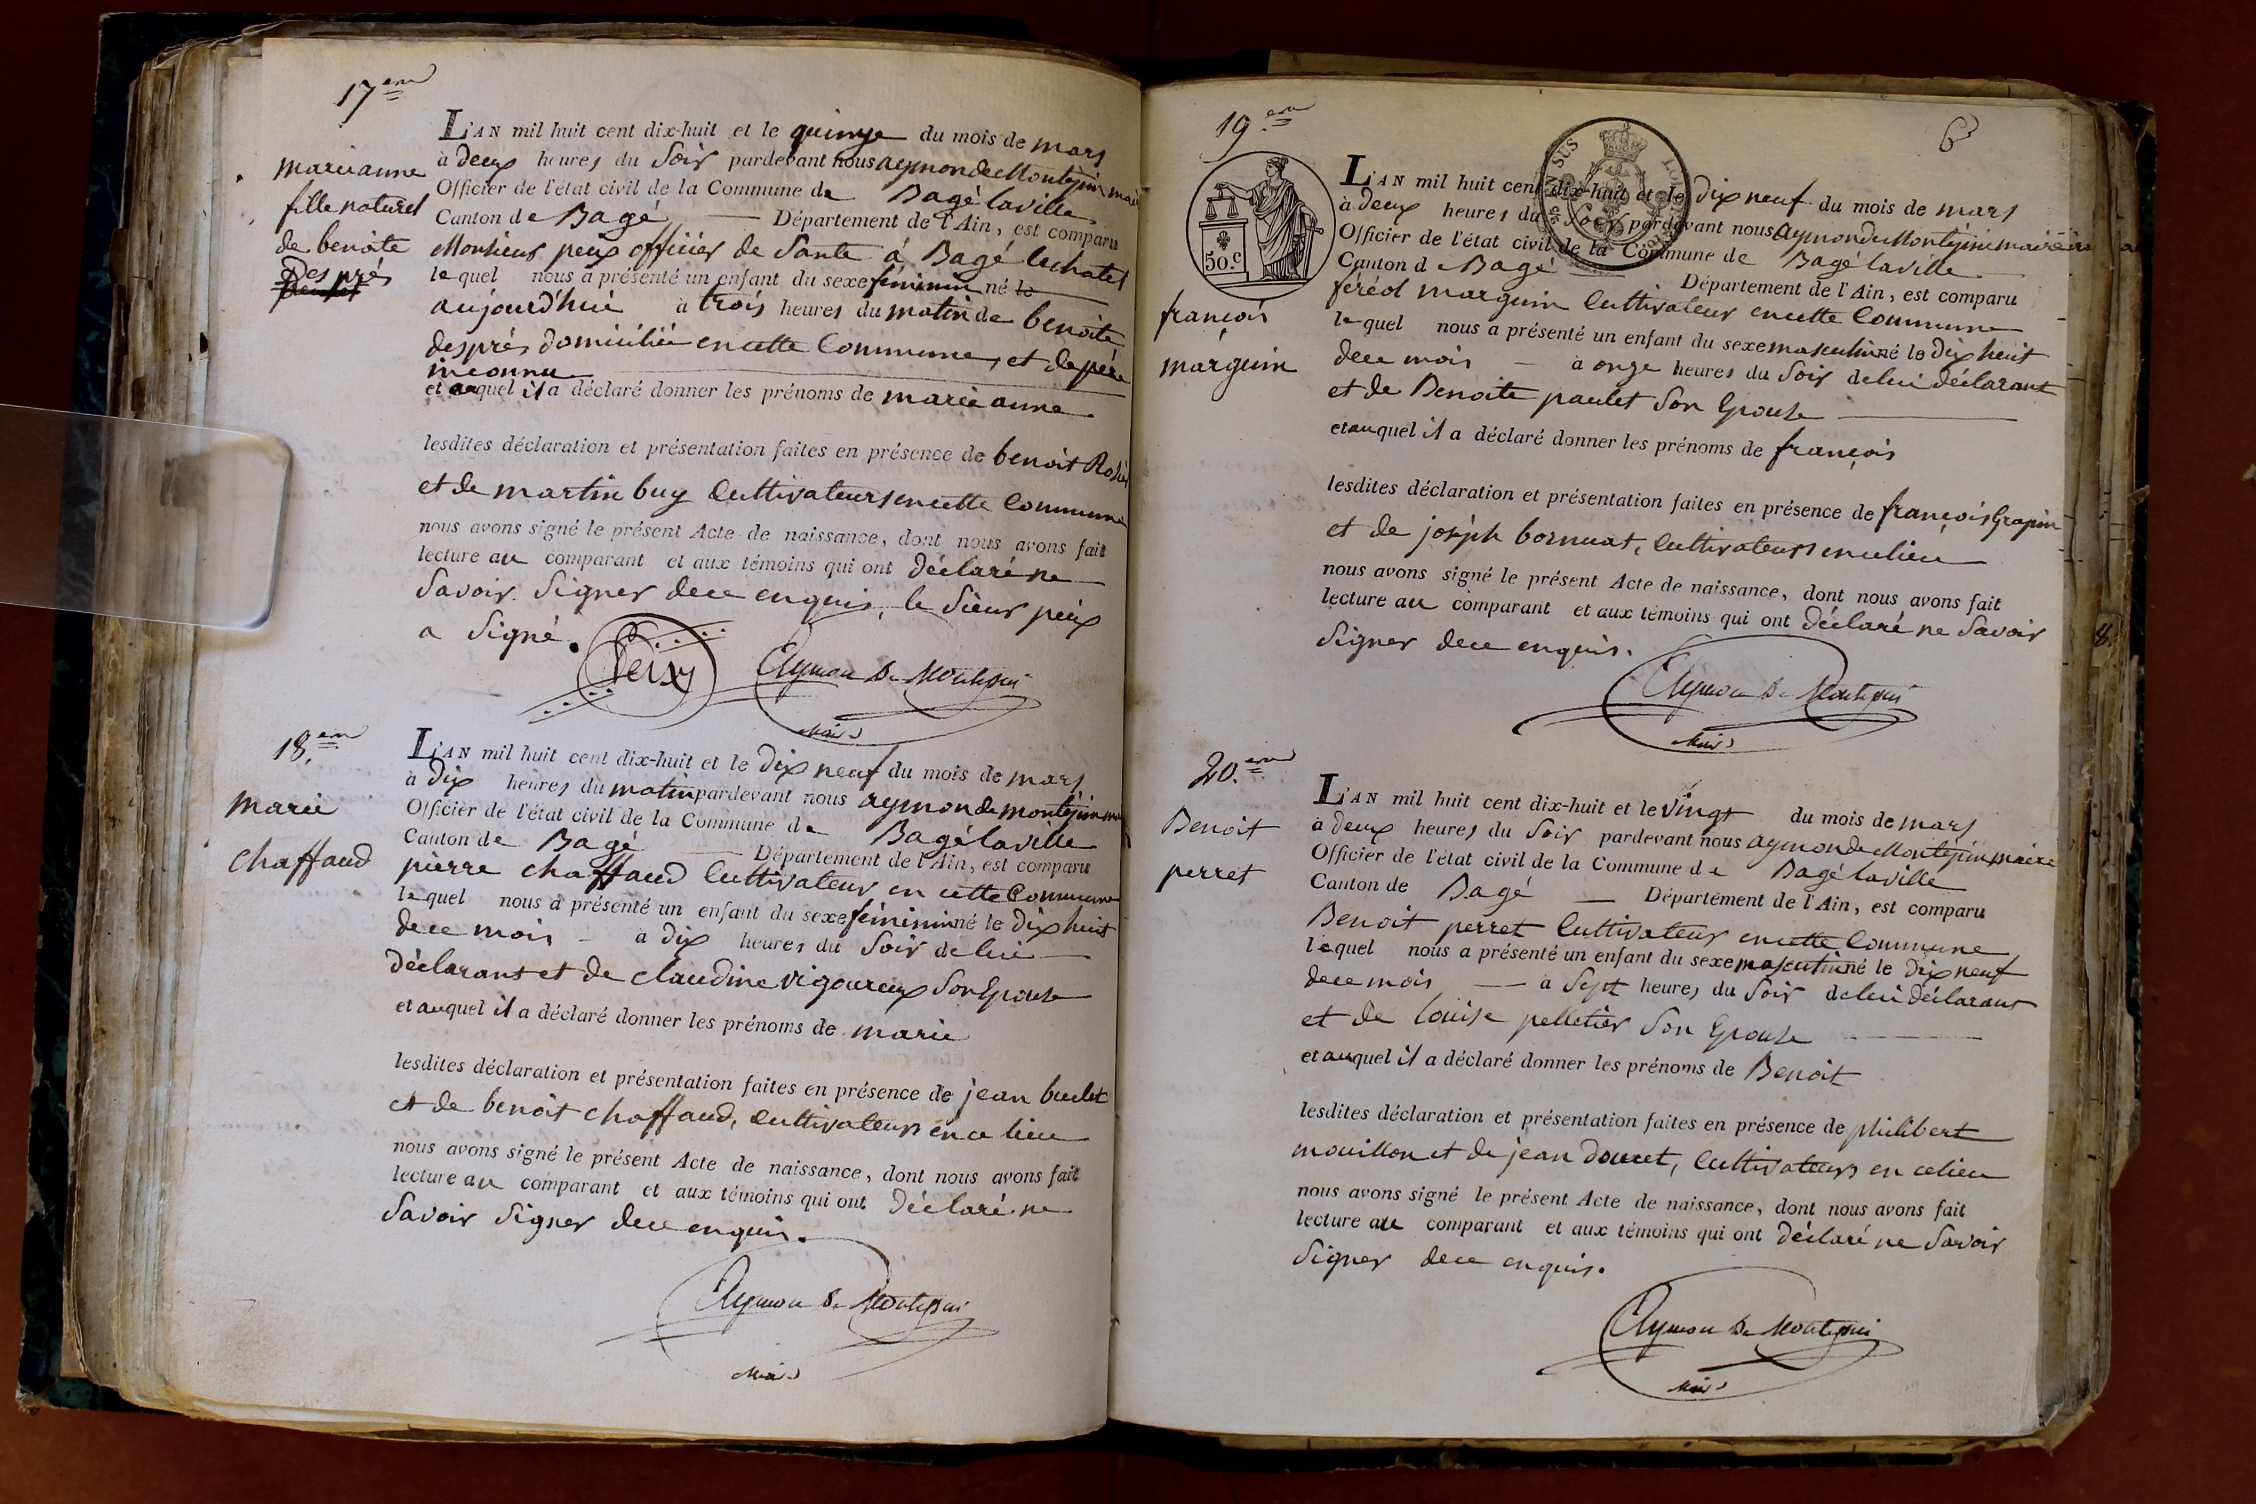 17.em
marie anne
fille naturel
de benoite
Des prés
L'AN mil huit cent dix-huit et le quinze du mois de mars
à deux heures du Soir pardevant nous aymon de Montépin mair
Officier de l'état civil de la Commune de Bagé laville
Canton de Bagé Département de l'Ain, est comparu
Monsieur peix officier de Sante á Bagé lechatel
lequel nous a présenté un enfant du sexe féminin né le
aujourd'hui à trois heures du matin de benoite
després domiciliée en cette Commune, et de pére
inconnu
et auquel il a déclaré donner les prénoms de marie anne
lesdites déclaration et présentation faites en présence de benoit
et de martin buy Cultivateurs en cette Commune
nous avons signé le présent Acte de naissance, dont nous avons fait
lecture au comparant et aux témoins qui ont déclaré ne
Savoir Signer de ce enquis, le Sieur peix
a Signé.
Peix Aymon De Montépin
Maire
18.em
marie
chaffaud
L'AN mil huit cent dix-huit et le dix neuf du mois de mars
à dix heures du matin pardevant nous aymon de montépin
Officier de l'état civil de la Commune de Bagé laville
Canton de Bagé Département de l'Ain, est comparu
pierre chaffaud Cultivateur en cette Commune
lequel nous a présenté un enfant du sexe féminin né le dix huit
de ce mois à dix heures du Soir de lui
déclarant et de claudine vigoureux Son Epouse
et auquel il a déclaré donner les prénoms de marie
lesdites déclaration et présentation faites en présence de jean
et de benoit chaffaud, Cultivateurs en ce lieu
nous avons signé le présent Acte de naissance, dont nous avons fait
lecture au comparant et aux témoins qui ont déclaré ne
Savoir Signer de ce enquis.
Aymon De Montépin
Maire
6
19.em
50.c
françois
marguin
L'AN mil huit cent dix-huit et le dix neuf du mois de mars
à deux heures du Soir pardevant nous aymon de Montépin maire
Officier de l'état civil de la Commune de Bagé laville
Canton de Bagé Département de l'Ain, est comparu
féréol marguin Cultivateur en cette Commune
lequel nous a présenté un enfant du sexe masculin né le dix huit
de ce mois à onze heures du Soir de lui déclarant
et de Benoite paulet Son Epouse
et auquel il a déclaré donner les prénoms de françois
lesdites déclaration et présentation faites en présence de françois
et de joseph bornuat, Cultivateurs en ce lieu
nous avons signé le présent Acte de naissance, dont nous avons fait
lecture au comparant et aux témoins qui ont déclaré ne Savoir
Signer de ce enquis.
Aymon De Montépin
Maire
20.em
Benoit
perret
L'AN mil huit cent dix-huit et le vingt du mois de mars
à deux heures du Soir pardevant nous aymon de Montépin maire
Officier de l'état civil de la Commune de Bagé laville
Canton de Bagé Département de l'Ain, est comparu
Benoit perret Cultivateur en cette Commune
lequel nous a présenté un enfant du sexe masculin né le dix neuf
de ce mois à Sept heures du Soir de lui déclarant
et de louise pelletier Son Epouse
et auquel il a déclaré donner les prénoms de Benoit
lesdites déclaration et présentation faites en présence de philibert
mouillon et de jean douret, Cultivateurs en ce lieu
nous avons signé le présent Acte de naissance, dont nous avons fait
lecture au comparant et aux témoins qui ont déclaré ne Savoir
Signer de ce enquis.
Aymon De Montépin
Maire